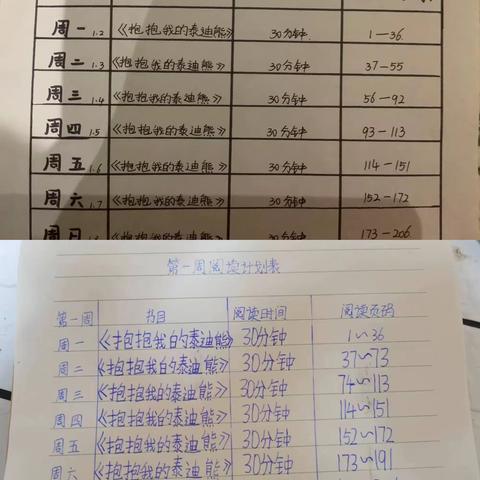 周一 1.2 《抱抱我的泰迪熊》 30分钟. 1—36.
周二 1.3 《抱抱我的泰迪熊》 30分钟 37—55
周三 1.4 《抱抱我的泰迪熊》 30分钟 56—92
周四 1.5 《抱抱我的泰迪熊》 30分钟 93—113
周五 1.6 《抱抱我的泰迪熊》 30分钟 114—151
周六 1.7 《抱抱我的泰迪熊》 30分钟 152—172
周日 《抱抱我的泰迪熊》 30分钟 173—206
第一周阅读计划表
第一周 书目 阅读时间 阅读页码
周一 《抱抱我的泰迪熊》 30分钟 1~36
周二 《抱抱我的泰迪熊》 30分钟 37~73
周三 《抱抱我的泰迪熊》 30分钟 74~113
周四 《抱抱我的泰迪熊》 30分钟 114~151
周五 《抱抱我的泰迪熊》 30分钟 152~172
周六 《抱抱我的泰迪熊》 30分钟 173~191